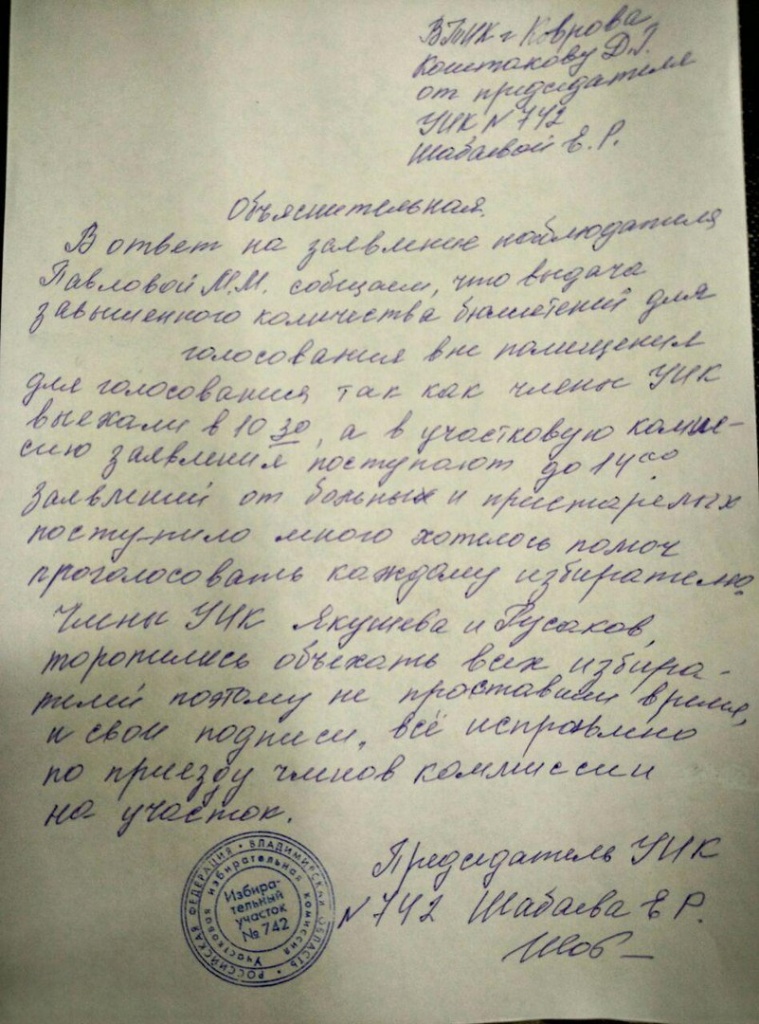 в ТИК г Коврова
Коштакову Д.Г.
от председателя
УИК N 742
Шабаевой Е.Р.
Объяснительная.
В ответ на заявление наблюдателя
Павловой М.М. сообщаем, что выдача
завышенного количества бюллетений для
голосования вне помещения
для голосования, так как члены УИК
выехали в 10 30, а в участковую комис-
сию заявления поступают до 14 00
Заявлений от больных и пристарелых
поступило много хотелось помоч
проголосовать каждому избирателю.
Члены УИК Якушева и Гусаков,
торопились объехать всех избира-
телей поэтому не проставили время,
и свои подписи, всё исправлено
по приезду членов коммиссии
на участок.
Председатель УИК
N 742 Шабаева Е Р.
РОССИЙСКАЯ ФЕДЕРАЦИЯ • ВЛАДИМИРСКАЯ ОБЛАСТЬ •
Участковая избирательная комиссия
Избира-
тельный
участок
№ 742